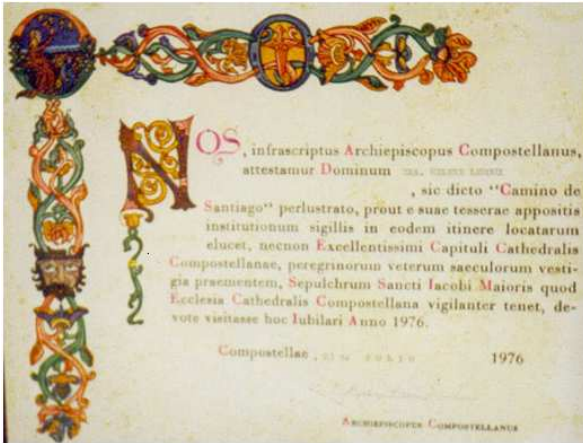 NOS, infrascriptus Archiepiscopus Compostellanus,
attestamur Dominum
, sic dicto "Camino de
Santiago" perlustrato, prout e suae tesserae appositis
institutionum sigillis in eodem itinere locatarum
elucet, necnon Excellentissimi Capituli Cathedralis
Compostellanae, peregrinorum veterum saeculorum vesti-
gia praementem, Sepulchrum Sancti Iacobi Maioris quod
Ecclesia Cathedralis Compostellana vigilanter tenet, de-
vote visitasse hoc Iubilari Anno 1976.
Compostellae, JULIO 1976
ARCHIEPISCOPUS COMPOSTELLANUS